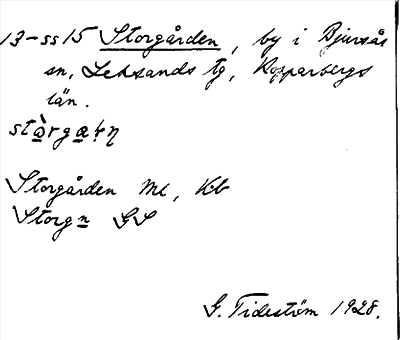 13-ss15 Storgården, by i Bjursås
sn, Leksands tg, Kopparbergs
län.
stàrgaṛŋ
Storgården Mc, Kb
Storgn GS
G. Tideström 1928.